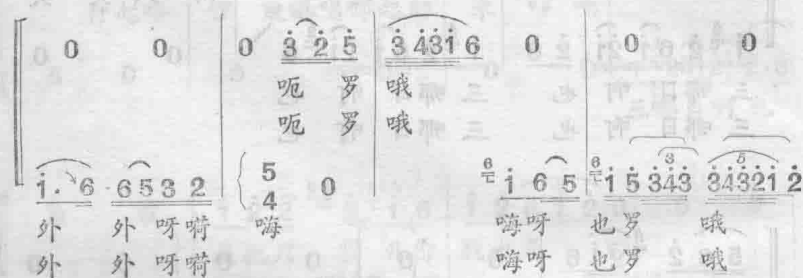 0 0 0 3 2 5 3 431 6 0 0 0
呃 罗 哦
呃 罗 哦
1. 6 6 5 3 2 5 0 6 1 6 5 6 1 5 3 4 3 3 3 4 3 5 2 1 2
4
外 外 呀 嗬 嗨 嗨 呀 也 罗 哦
外 外 呀 嗬 嗨 嗨 呀 也 罗 哦